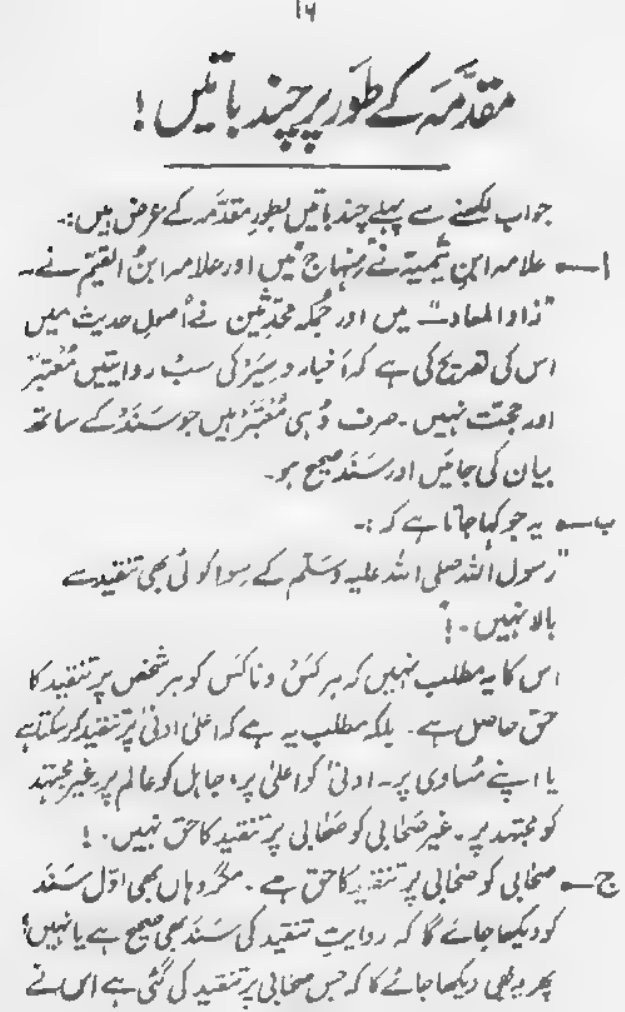 ۱۶
مقدّمہ کے طَور پر چند باتیں !
جواب لکھنے سے پہلے چند باتیں بطورِ مقدَّمہ کے عرض ہیں:۔
ا۔ علامہ ابنِ تیمیۃ نے "منہاج" میں اور علامہ ابنُ القیّم نے۔
"زاد المعاد" میں اور جُملہ محدّثین نے اُصولِ حدیث میں
اس کی تصریح کی ہے کہ اَخبار و سِیَر کی سب روایتیں مُعْتَبَرْ
اور حجت نہیں ۔ صرف وُہی مُعْتَبَرْ ہیں جو سَنَدْ کے ساتھ
بیان کی جائیں اور سَنَد صحیح ہو۔
ب۔ یہ جو کہا جاتا ہے کہ :۔
"رسول اللہ صلی اللہ علیہ وسَلّم کے سِوا کوئی بھی تنقید سے
بالا نہیں ۔!"
اس کا یہ مطلب نہیں کہ ہر کَسْ و ناکَس کو ہر شخص پر تنقید کا
حق حاصل ہے ۔ بلکہ مطلب یہ ہے کہ اعلیٰ ادنیٰ پر تنقید کر سکتا ہے
یا اپنے مُساوی پر۔ ادنیٰ کو اعلیٰ پر، جاہل کو عالم پر، غیر مجتہد
کو مجتہد پر ۔ غیر صَحَابی کو صَحَابی پر تنقید کا حق نہیں ۔ !
ج۔ صحَابی کو صحَابی پر تنقید کا حق ہے ۔ مگر وہاں بھی اوّل سَنَد
کو دیکھا جائے گا کہ روایتِ تنقید کی سَنَد بھی صحیح ہے یا نہیں؟
پھر یہ بھی دیکھا جائے گا کہ جس صحَابی پر تنقید کی گئی ہے اس نے